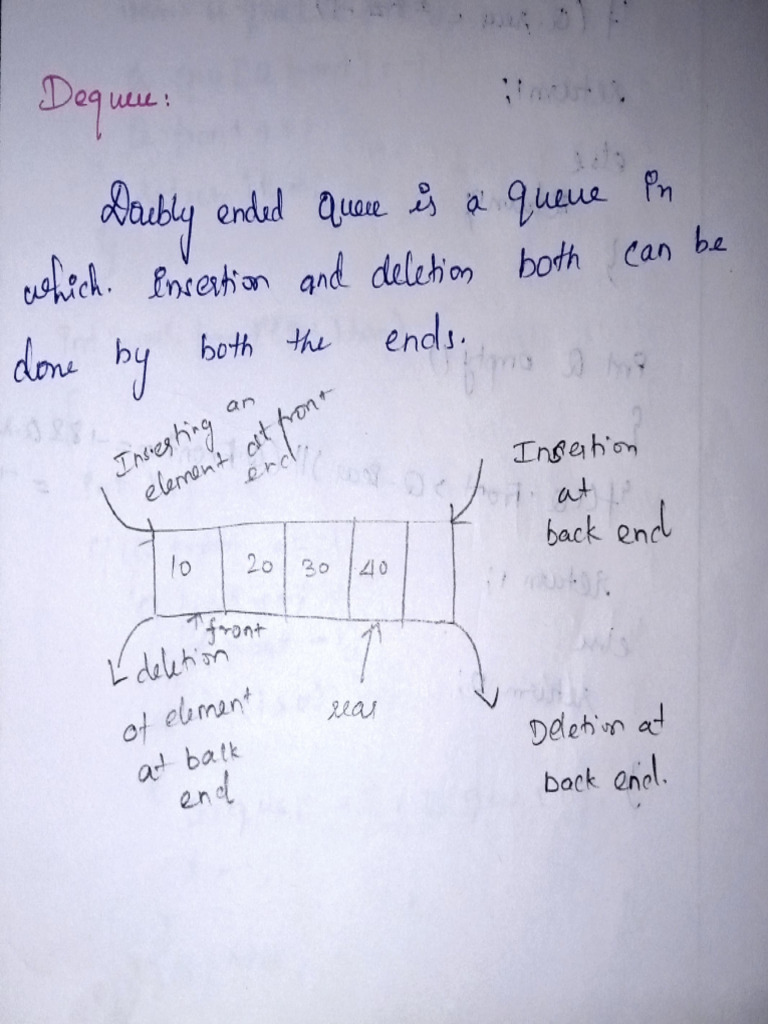 Dequeue:
Doubly ended queue is a queue in
which. Insertion and deletion both can be
done by both the ends.
Inserting an
element at front
end
Insertion
at
back end
10 20 30 40
front
deletion
of element
at back
end
rear
Deletion at
back end.